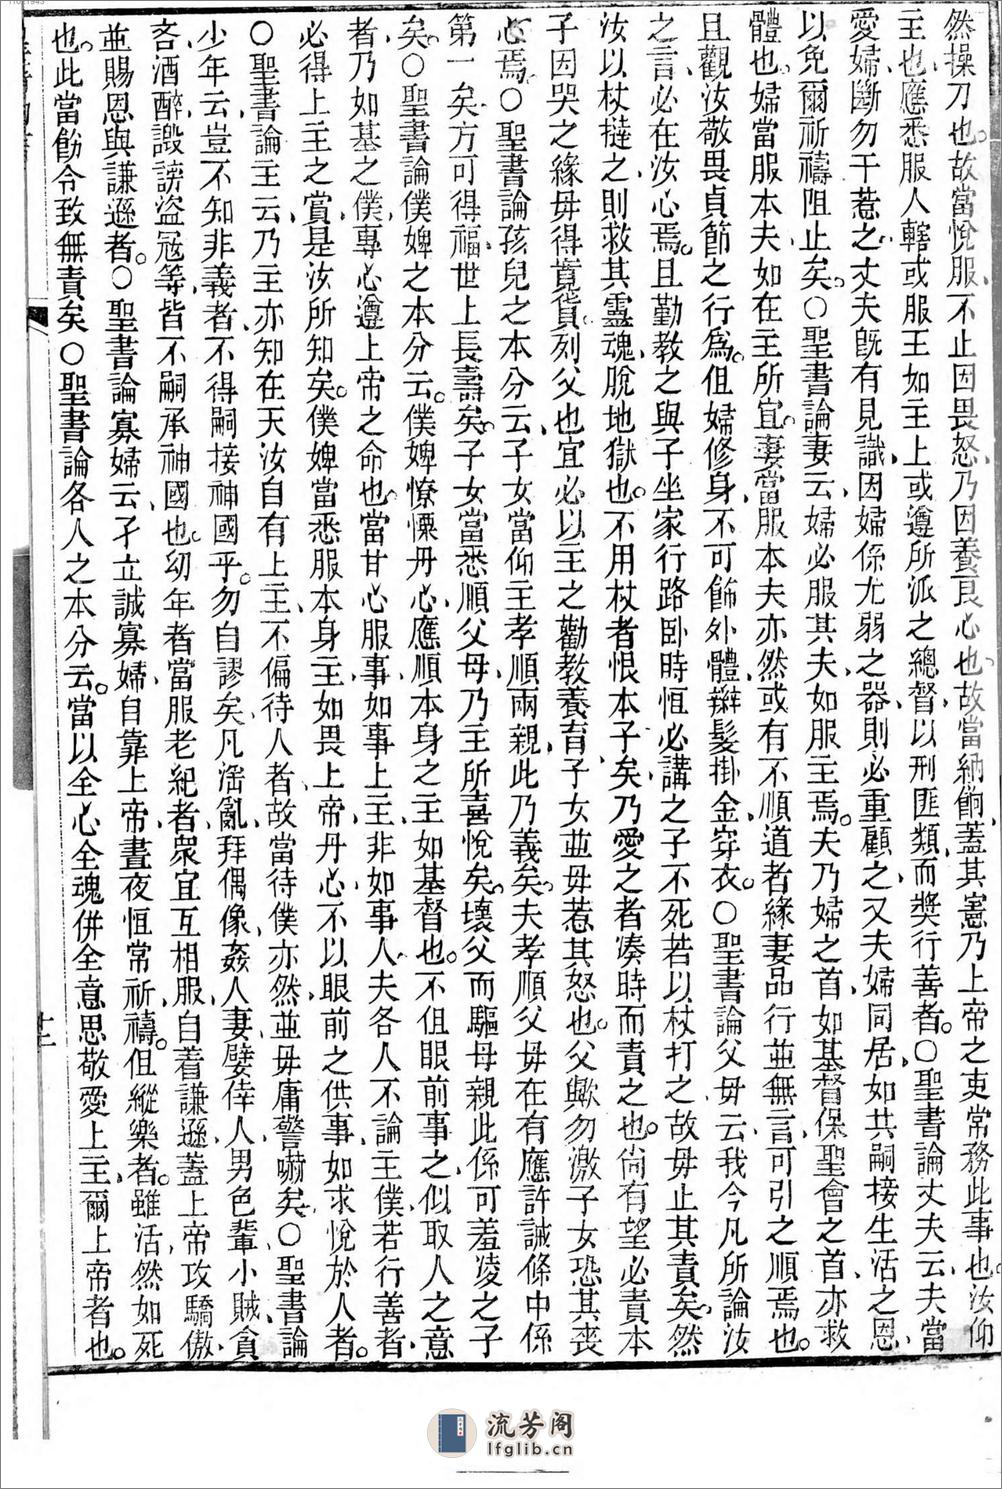 然操刀也。故當悅服、不止因畏怒、乃因養良心也。故當納餉、蓋其憲乃上帝之吏、常務此事也。汝仰
主也、應悉服人轄、或服王如主上、或遵所派之總督、以刑匪類、而獎行善者。〇聖書論丈夫云、夫當
愛婦、斷勿干惹之、丈夫旣有見識、因婦係尤弱之器、則必重顧之、又夫婦同居、如共嗣接生活之恩、
以免爾祈禱阻止矣。〇聖書論妻云、婦必服其夫、如服主焉。夫乃婦之首、如基督保聖會之首、亦救
體也。婦當服本夫、如在主所宜。妻當服本夫亦然、或有不順道者、緣妻品行、並無言可引之順焉也。
且觀汝敬畏貞節之行爲。但婦修身、不可飾外體、辮髮掛金穿衣。〇聖書論父毋云、我今凡所論汝
之言、必在汝心焉。且勤教之與子、坐家行路臥時、恒必講之、子不死、若以杖打之、故毋止其責矣。然
汝以杖撻之、則救其靈魂、脫地獄也。不用杖者、恨本子矣、乃愛之者、湊時而責之也。尙有望、必責本
子、因哭之緣、毋得寬貸。列父也、宜必以主之勸教養育子女、並毋惹其怒也。父歟、勿激子女、恐其喪
心焉。〇聖書論孩兒之本分云、子女當仰主孝順兩親、此乃義矣。夫孝順父毋、在有應許誡條中係
第一矣、方可得福、世上長壽矣。子女當悉順父毋、乃主所喜悅矣。壞父而驅母親、此係可羞凌之子
矣。〇聖書論僕婢之本分云、僕婢憭慄丹心、應順本身之主、如基督也。不但眼前事之、似取人之意
者、乃如基之僕、專心遵上帝之命也。當甘心服事、如事上主、非如事人、夫各人不論主僕、若行善者、
必得上主之賞、是汝所知矣。僕婢當悉服本身主、如畏上帝、丹心不以眼前之供事、如求悅於人者。
〇聖書論主云、乃主亦知在天、汝自有上主、不偏待人者、故當待僕亦然、並毋庸警嚇矣。〇聖書論
少年云、豈不知非義者、不得嗣接神國乎。勿自謬矣、凡淫亂、拜偶像、姦人妻、嬖倖人、男色輩、小賊、貪
吝、酒醉、譭謗、盜冦等、皆不嗣承神國也。幼年者、當服老紀者、衆宜互相服、自着謙遜、蓋上帝攻驕傲、
並賜恩與謙遜者。〇聖書論寡婦云、孑立誠寡婦、自靠上帝、晝夜恒常祈禱。但縱樂者、雖活然如死
也。此當飭令、致無責矣。〇聖書論各人之本分云、當以全心全魂倂全意思、敬愛上主、爾上帝者也。
十二
流芳阁
lfglib.cn